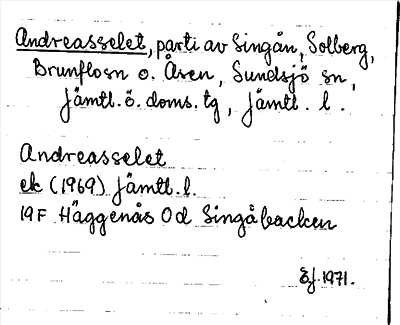 Andreasselet, parti av Singån, Solberg,
Brunflosn o. Åsen, Sundsjö sn,
Jämtl. ö. doms. tg, Jämtl. l.
Andreasselet
ek (1969) Jämtl. l.
19F Häggenås 0d Singåbacken
1971.